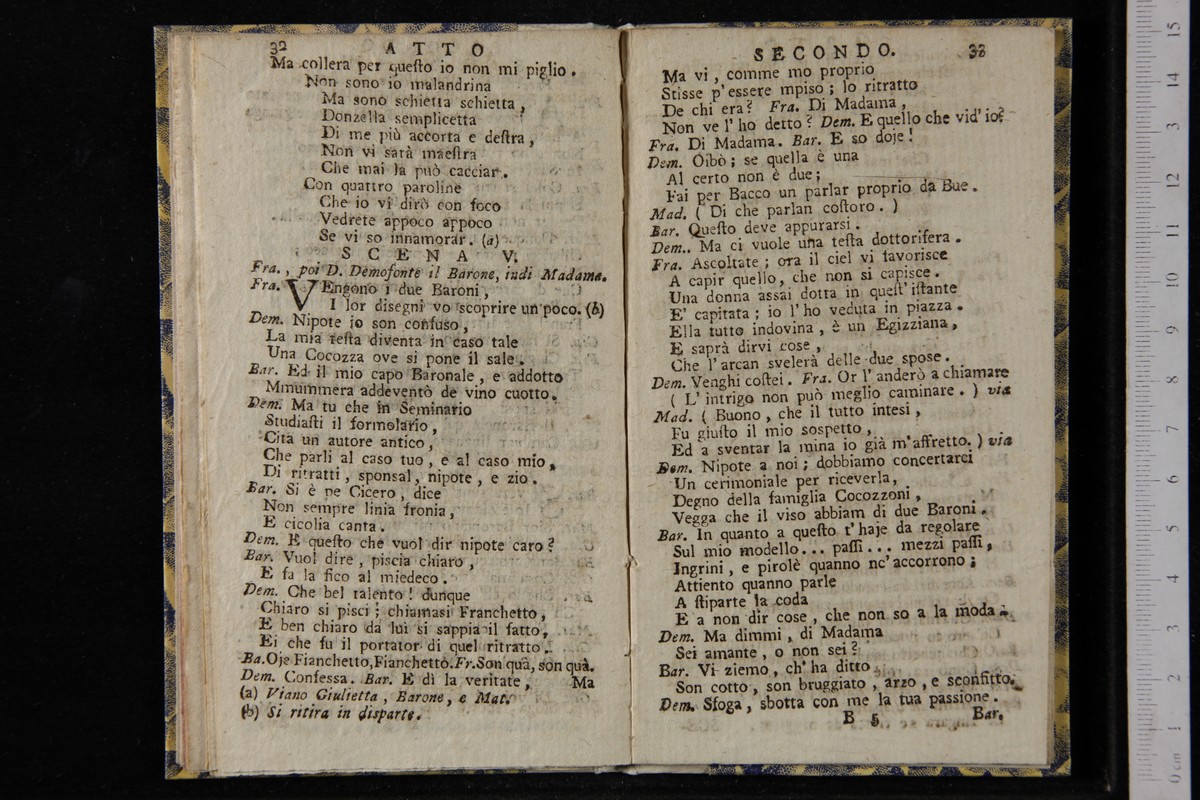 32 ATTO
Ma collera per queſto io non mi piglio.
Non sono io malandrina
Ma sono schietta schietta,
Donzella semplicetta
Di me più accorta e deſtra,
Non vi sarà maeſtra
Che mai la può cacciar.
Con quattro paroline
Che io vi dirò con foco
Vedrete appoco appoco
Se vi so innamorar. (a)
SCENA V.
Fra., poi D. Demofonte il Barone, indi Madama.
Fra. VEngono i due Baroni,
I lor disegni vo scoprire un poco. (b)
Dem. Nipote io son confuso,
La mia teſta diventa in caso tale
Una Cocozza ove si pone il sale.
Bar. Ed il mio capo Baronale, e addotto
Mmummera addeventò de vino cuotto.
Dem. Ma tu che in Seminario
Studiaſti il formolario,
Cita un autore antico,
Che parli al caso tuo, e al caso mio,
Di ritratti, sponsal, nipote, e zio.
Bar. Si è pe Cicero, dice
Non sempre linia fronia,
E cicolia canta.
Dem. E queſto che vuol dir nipote caro?
Bar. Vuol dire, piscia chiaro,
E fa la fico al miedeco.
Dem. Che bel talento! dunque
Chiaro si pisci; chiamasi Franchetto,
E ben chiaro da lui si sappia il fatto,
Ei che fu il portator di quel ritratto.
Ba. Oje Fianchetto, Fianchetto. Fr. Son quà, son quà.
Dem. Confessa. Bar. E dì la veritate, Ma
(a) Viano Giulietta, Barone, e Mat.
(b) Si ritira in disparte.
SECONDO. 33
Ma vi, comme mo proprio
Stisse p'essere mpiso; lo ritratto
De chi era? Fra. Di Madama,
Non ve l'ho detto? Dem. E quello che vid'io?
Fra. Di Madama. Bar. E so doje!
Dem. Oibò; se quella è una
Al certo non è due;
Fai per Bacco un parlar proprio da Bue.
Mad. (Di che parlan coſtoro.)
Bar. Queſto deve appurarsi.
Dem.. Ma ci vuole una teſta dottorifera.
Fra. Ascoltate; ora il ciel vi favorisce
A capir quello, che non si capisce.
Una donna assai dotta in queſt'iſtante
E' capitata; io l'ho veduta in piazza.
Ella tutto indovina, è un Egizziana,
E saprà dirvi cose,
Che l'arcan svelerà delle due spose.
Dem. Venghi coſtei. Fra. Or l'anderò a chiamare
(L'intrigo non può meglio caminare.) via
Mad. (Buono, che il tutto intesi,
Fu giuſto il mio sospetto,
Ed a sventar la mina io già m'affretto.) via
Dem. Nipote a noi; dobbiamo concertarci
Un cerimoniale per riceverla,
Degno della famiglia Cocozzoni,
Vegga che il viso abbiam di due Baroni.
Bar. In quanto a queſto t'haje da regolare
Sul mio modello... paſſi... mezzi paſſi,
Ingrini, e pirolè quanno nc'accorrono;
Attiento quanno parle
A ſtiparte la coda
E a non dir cose, che non so a la moda.
Dem. Ma dimmi, di Madama
Sei amante, o non sei?
Bar. Vi ziemo, ch'ha ditto
Son cotto, son bruggiato, arzo, e sconfitto.
Dem. Sfoga, sbotta con me la tua passione.
B 5 Bar.